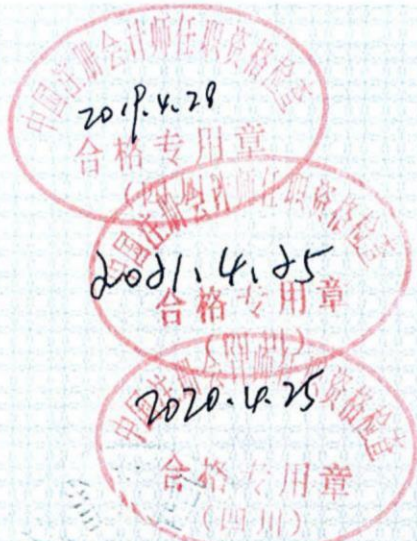 中国注册会计师任职资格检查
2019.4.29
合格专用章
(四川)
中国注册会计师任职资格检查
2021.4.25
合格专用章
(四川)
中国注册会计师任职资格检查
2020.4.25
合格专用章
(四川)